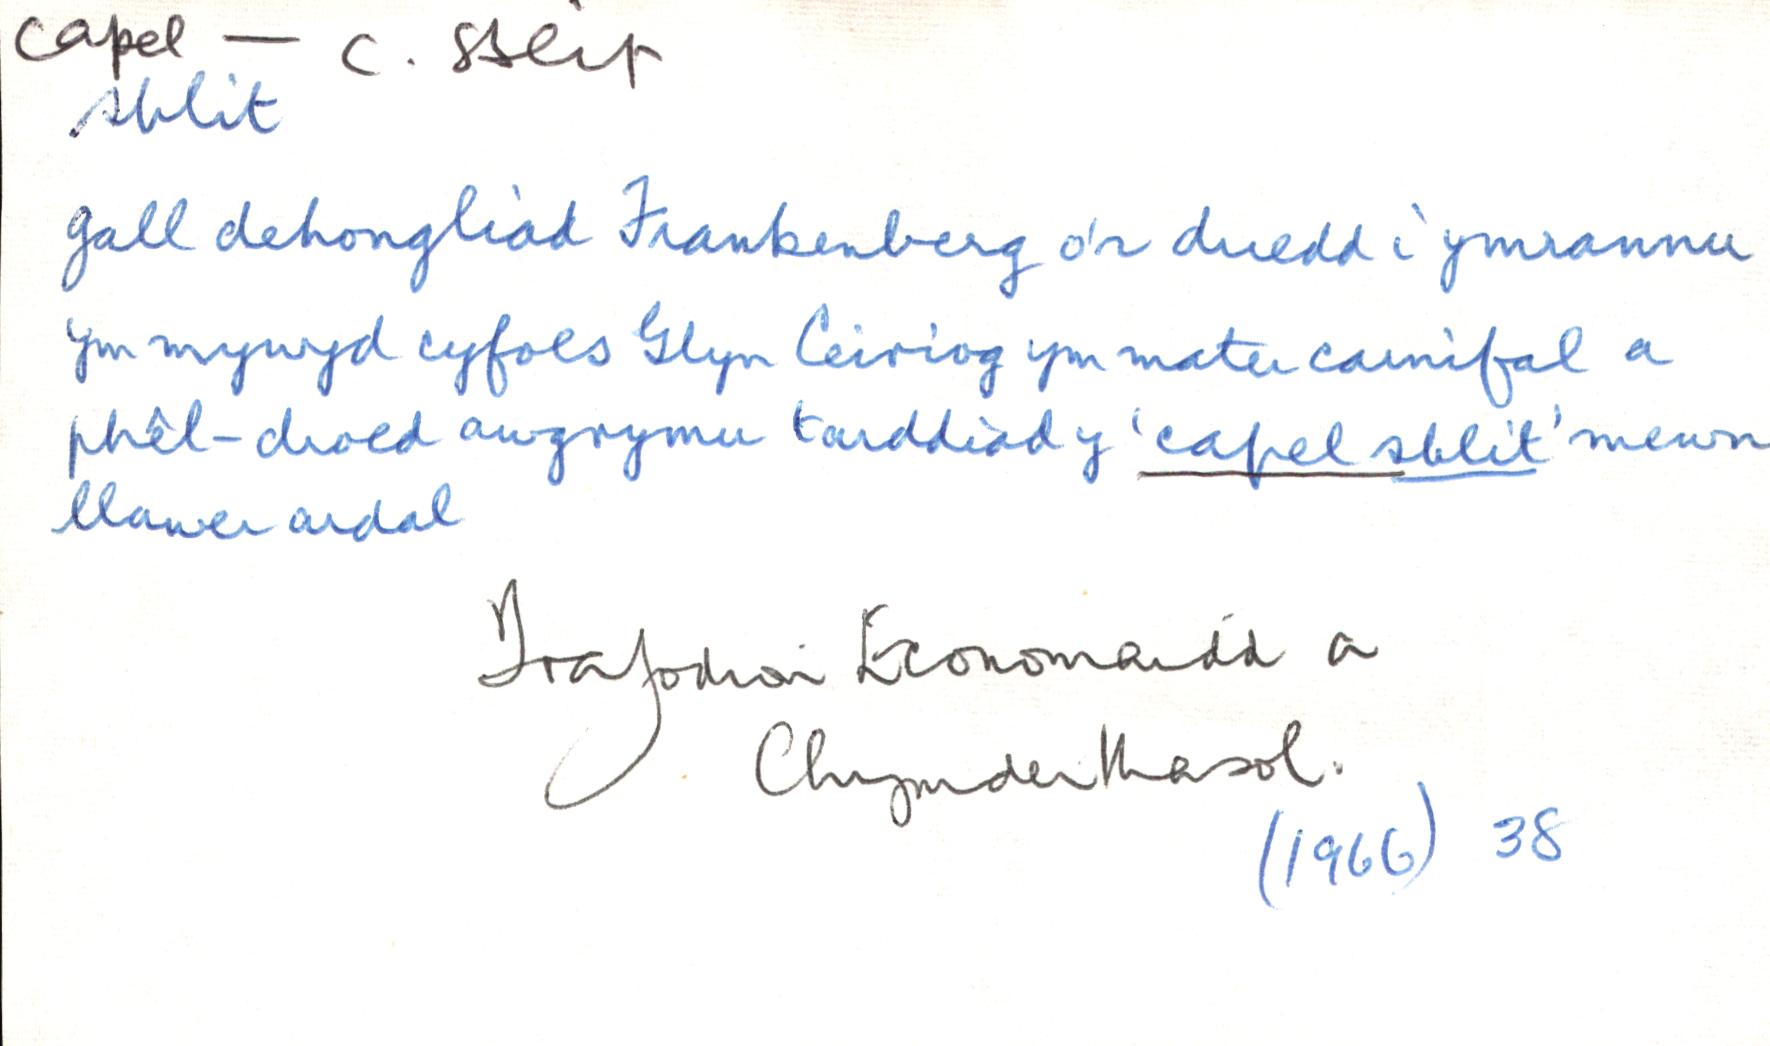 capel — c. sblit
sblit
gall dehongliad Frankenberg o'r duedd i ymrannu
ym mywyd cyfoes Glyn Ceiriog ym mater carnifal a
phêl-droed awgrymu tarddiad y 'capel sblit' mewn
llawer ardal
Trafodion Economaidd a
Chymdeithasol.
(1966) 38